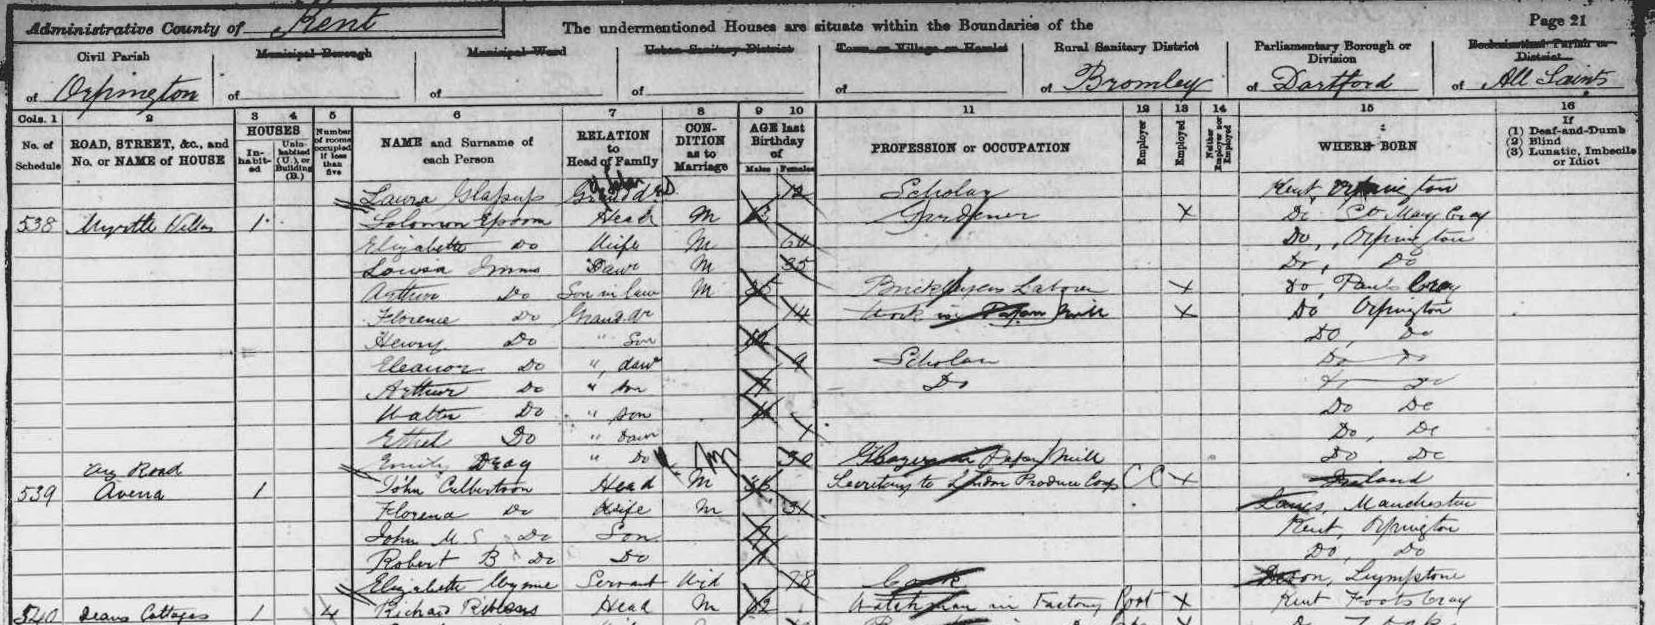 Administrative County of Kent The undermentioned Houses are situate within the Boundaries of the Page 21
Civil Parish Municipal Borough Municipal Ward Urban Sanitary District Town or Village or Hamlet Rural Sanitary District Parliamentary Borough or Division Ecclesiastical Parish or District
of Orpington of of of of of Bromley of Dartford of All Saints
Cols. 1 2 3 4 5 6 7 8 9 10 11 12 13 14 15 16
No. of Schedule ROAD, STREET, &c., and No. or NAME of HOUSE HOUSES Inhabited Uninhabited (U.), or Building (B.) Number of rooms occupied if less than five NAME and Surname of each Person RELATION to Head of Family CONDITION as to Marriage AGE last Birthday of Males Females PROFESSION or OCCUPATION Employer Employed Neither Employer nor Employed WHERE BORN If (1) Deaf-and-Dumb (2) Blind (3) Lunatic, Imbecile or Idiot
Laura 12 Scholar Kent, Orpington
538 Myrtle Villas 1 Solomon Epsom Head M Gardener X Do St Mary Cray
Elizabeth Do Wife M Do, Orpington
Louisa Imms Dawr M 35 Do, Do
Arthur Do Son in law M 35 Bricklayers Labourer X Do, Pauls Cray
Florence Do Grand dr 14 Work in Paper Mill X Do Orpington
Henry Do " Son Do, Do
Eleanor Do " dawr 9 Scholar Do Do
Arthur Do " son Do
Walter Do " son Do Do
Ethel Do " Dawr Do, Do
Emily " Do M 30 in Paper Mill Do Do
539 Road Avena 1 John Culbertson Head M Secretary to London Produce X Ireland
Florence Do Wife M 31 Lancs, Manchester
John M. S. Do Son Kent, Orpington
Robert B Do Do Do, Do
Elizabeth Wynne Servant Wid 78 Cook Devon, Lympstone
540 Deans Cottages 1 4 Richard Head M 62 Watchman in Factory X Kent Foots Cray